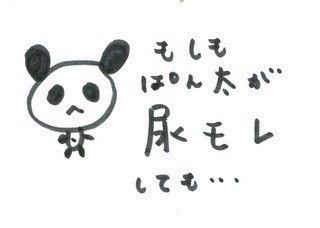 もしも
ぱん太が
尿モレ
しても・・・